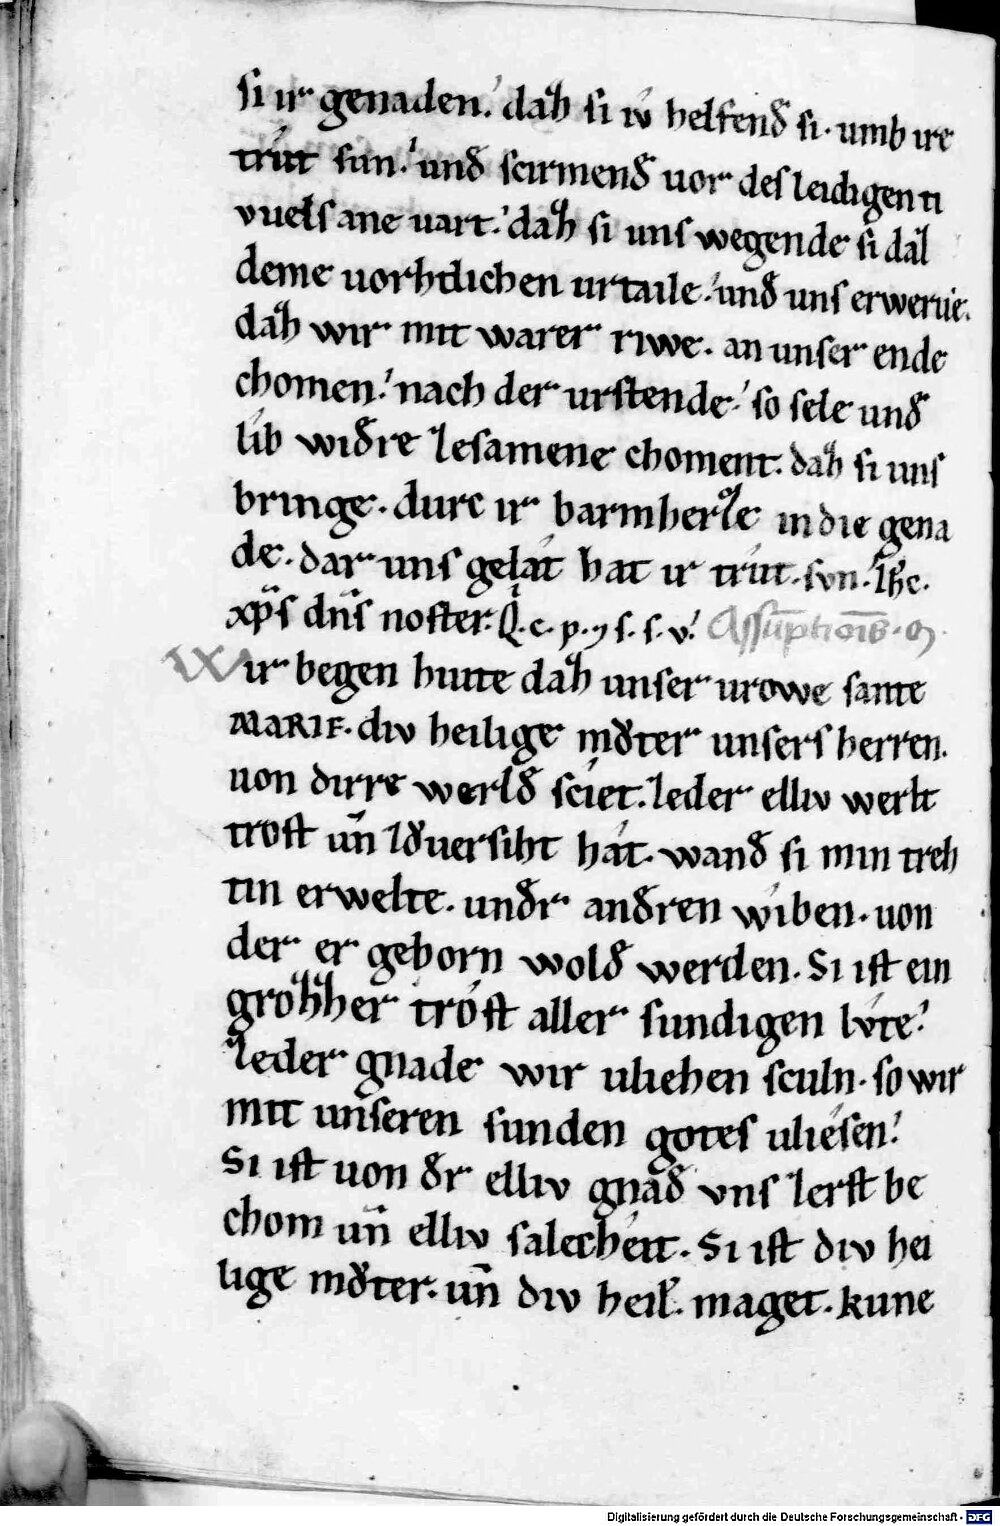 si ir genaden. daꜩ si iv helfend si. umb ire
trút sun. und scirmend uor des leidigen ti
vuels ane uart. daꜩ si uns wegende si dal
deme uorhtlichen urtaile. und uns erwerue.
daꜩ wir mit warer riwe. an unser ende
chomen. nach der urstende. so sele und
lib widre zesamene choment. daꜩ si uns
bringe. durc ir barmherze in die gena
de. dar uns gelait hat ir trút. svn. Ihc.
xp̄s dn̄s noster. Q. c. p. ⁊ s. s. v. Assūptiōis. m
Wir begen hiute daꜩ unser urowe sante
MARIE. div heilige mǒter unsers herren.
uon dirre werld sciet. zeder elliv werlt
trost un̄ zǒuersiht hát. wand si min treh
tin erwelte. undr andren wiben. uon
der er geborn wold werden. Si ist ein
groꜩꜩer trost aller sundigen lvte.
zeder gnade wir uliehen sculn. so wir
mit unseren sunden gotes uliesen.
Si ist uon dr elliv gnad vns zerst be
chom un̄ elliv salecheit. Si ist div hei
lige mǒter. un̄ div heil. maget. kune
Digitalisierung gefördert durch die Deutsche Forschungsgemeinschaft - DFG